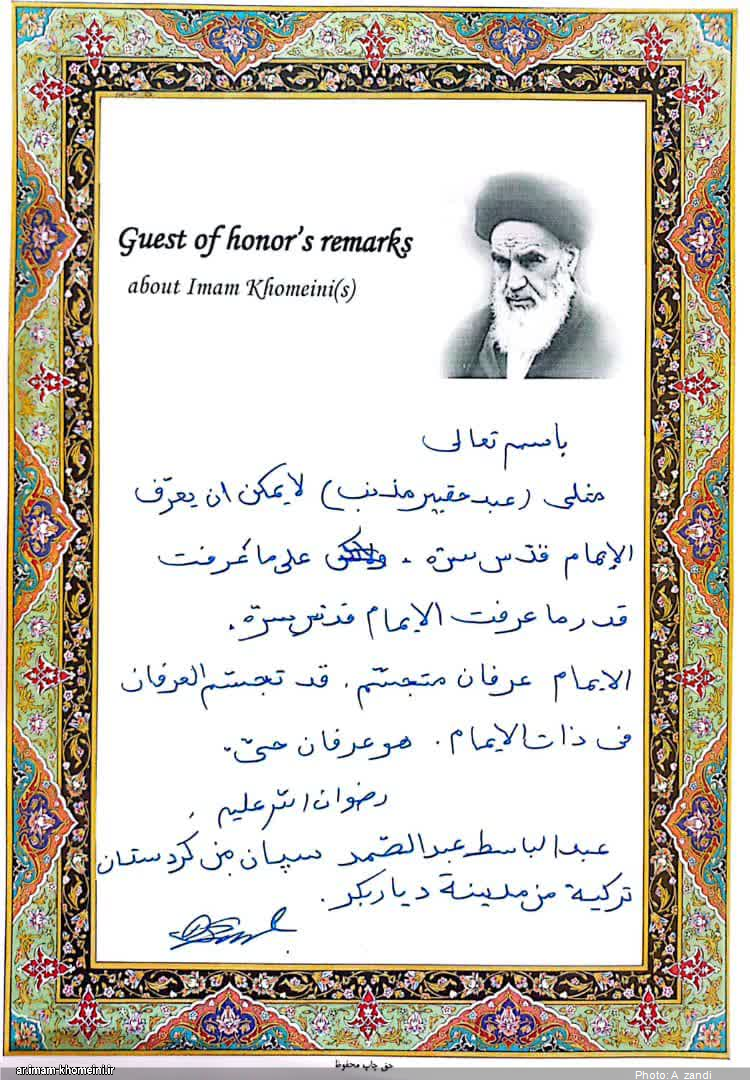 Guest of honor's remarks
about Imam Khomeini(s)
باسمه تعالى
مثلي (عبد حقير مذنب) لا يمكن ان يعرّف
الإمام قدّس سرّه . على ما عرفت
قدر ما عرفت الامام قدّس سرّه .
الامام عرفان متجسّم . قد تجسّم العرفان
في ذات الامام . هو عرفان حيّ .
رضوان الله عليه .
عبدالباسط عبدالصّمد سپان من كردستان
تركية من مدينة دياربكر .
حق چاپ محفوظ
ar.imam-khomeini.ir
Photo: A. zandi